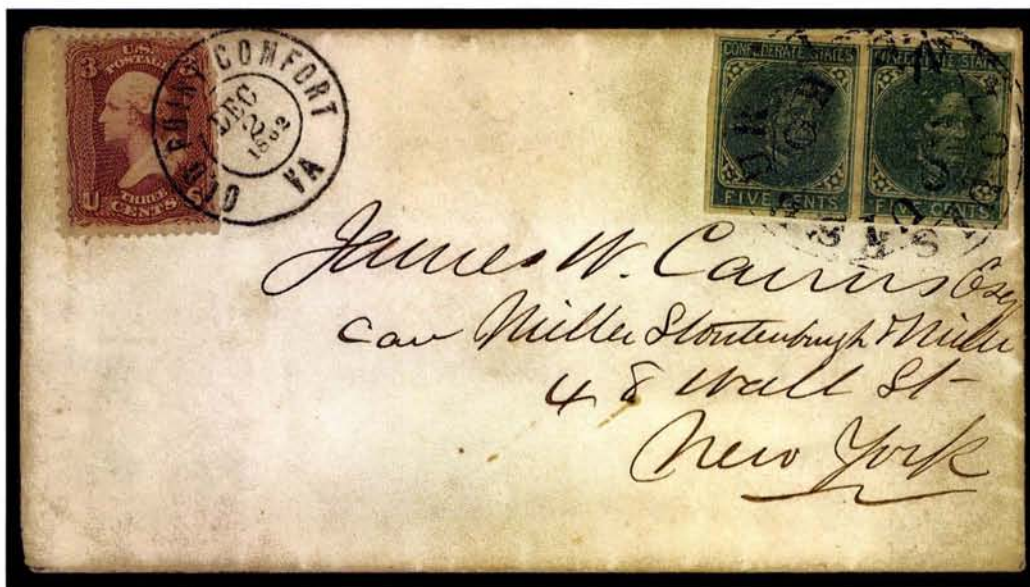 U.S.
3 POSTAGE 3
U THREE CENTS S
OLD POINT COMFORT
VA
DEC
2
1862
CONFEDERATE STATES
FIVE CENTS
CONFEDERATE STATES
FIVE CENTS
James W. Cairns Esq
Care Miller Stoutenburgh & Miller
48 Wall St
New York